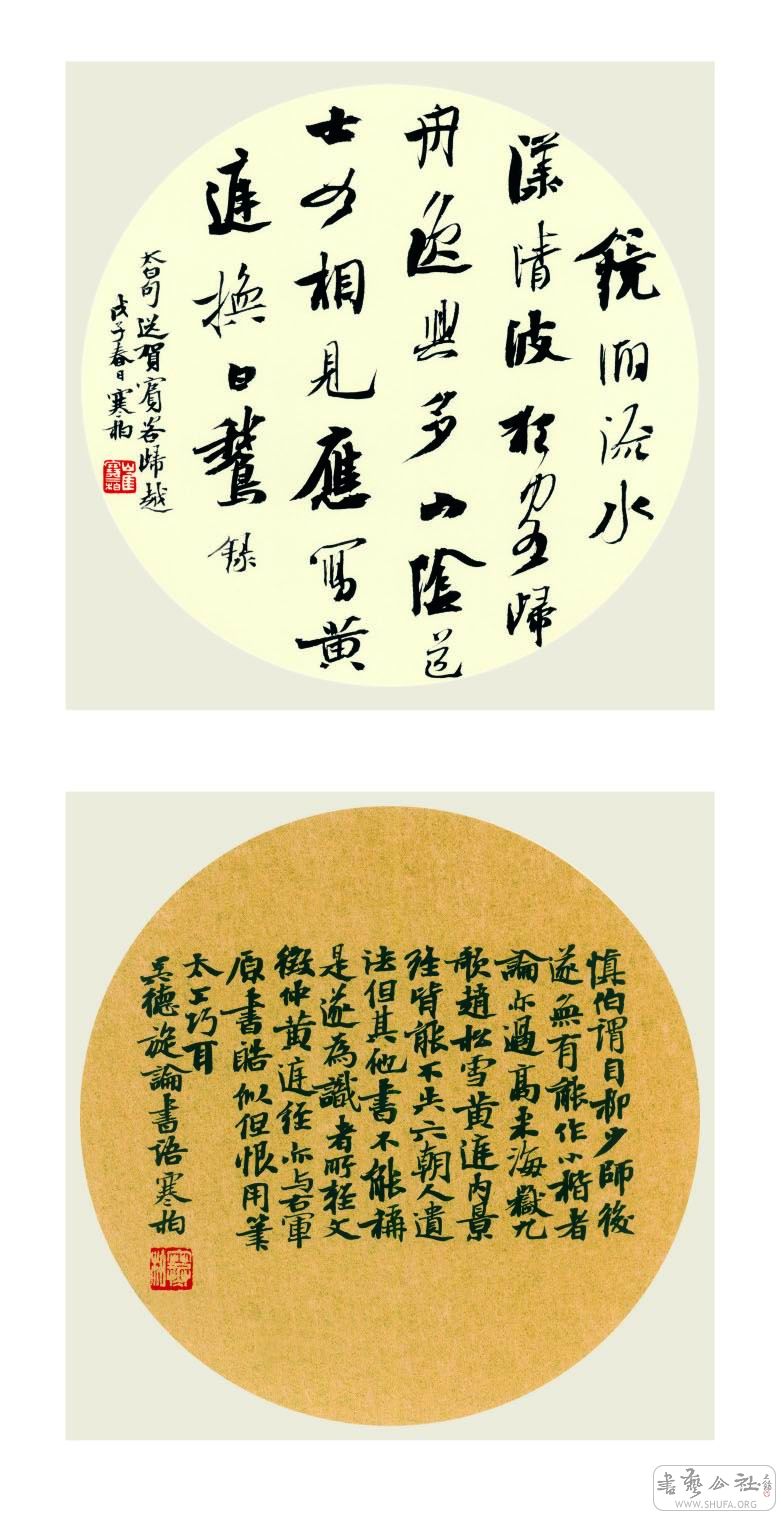 鏡湖流水
漾清波狂客歸
舟逸興多山陰道
士如相見應寫黃
庭換白鵝 錄
太白句送賀賓客歸越
戊子春日寒柏
崔寒柏
慎伯謂自柳少師後
遂無有能作小楷者
論亦過高米海嶽九
歌趙松雪黃庭內景
經皆能不失六朝人遺
法但其他書不能稱
是遂為識者所輕文
徵仲黃庭經亦与右軍
原書酷似但恨用筆
太工巧耳
吳德旋論書語寒柏
書藝公社
WWW.SHUFA.ORG